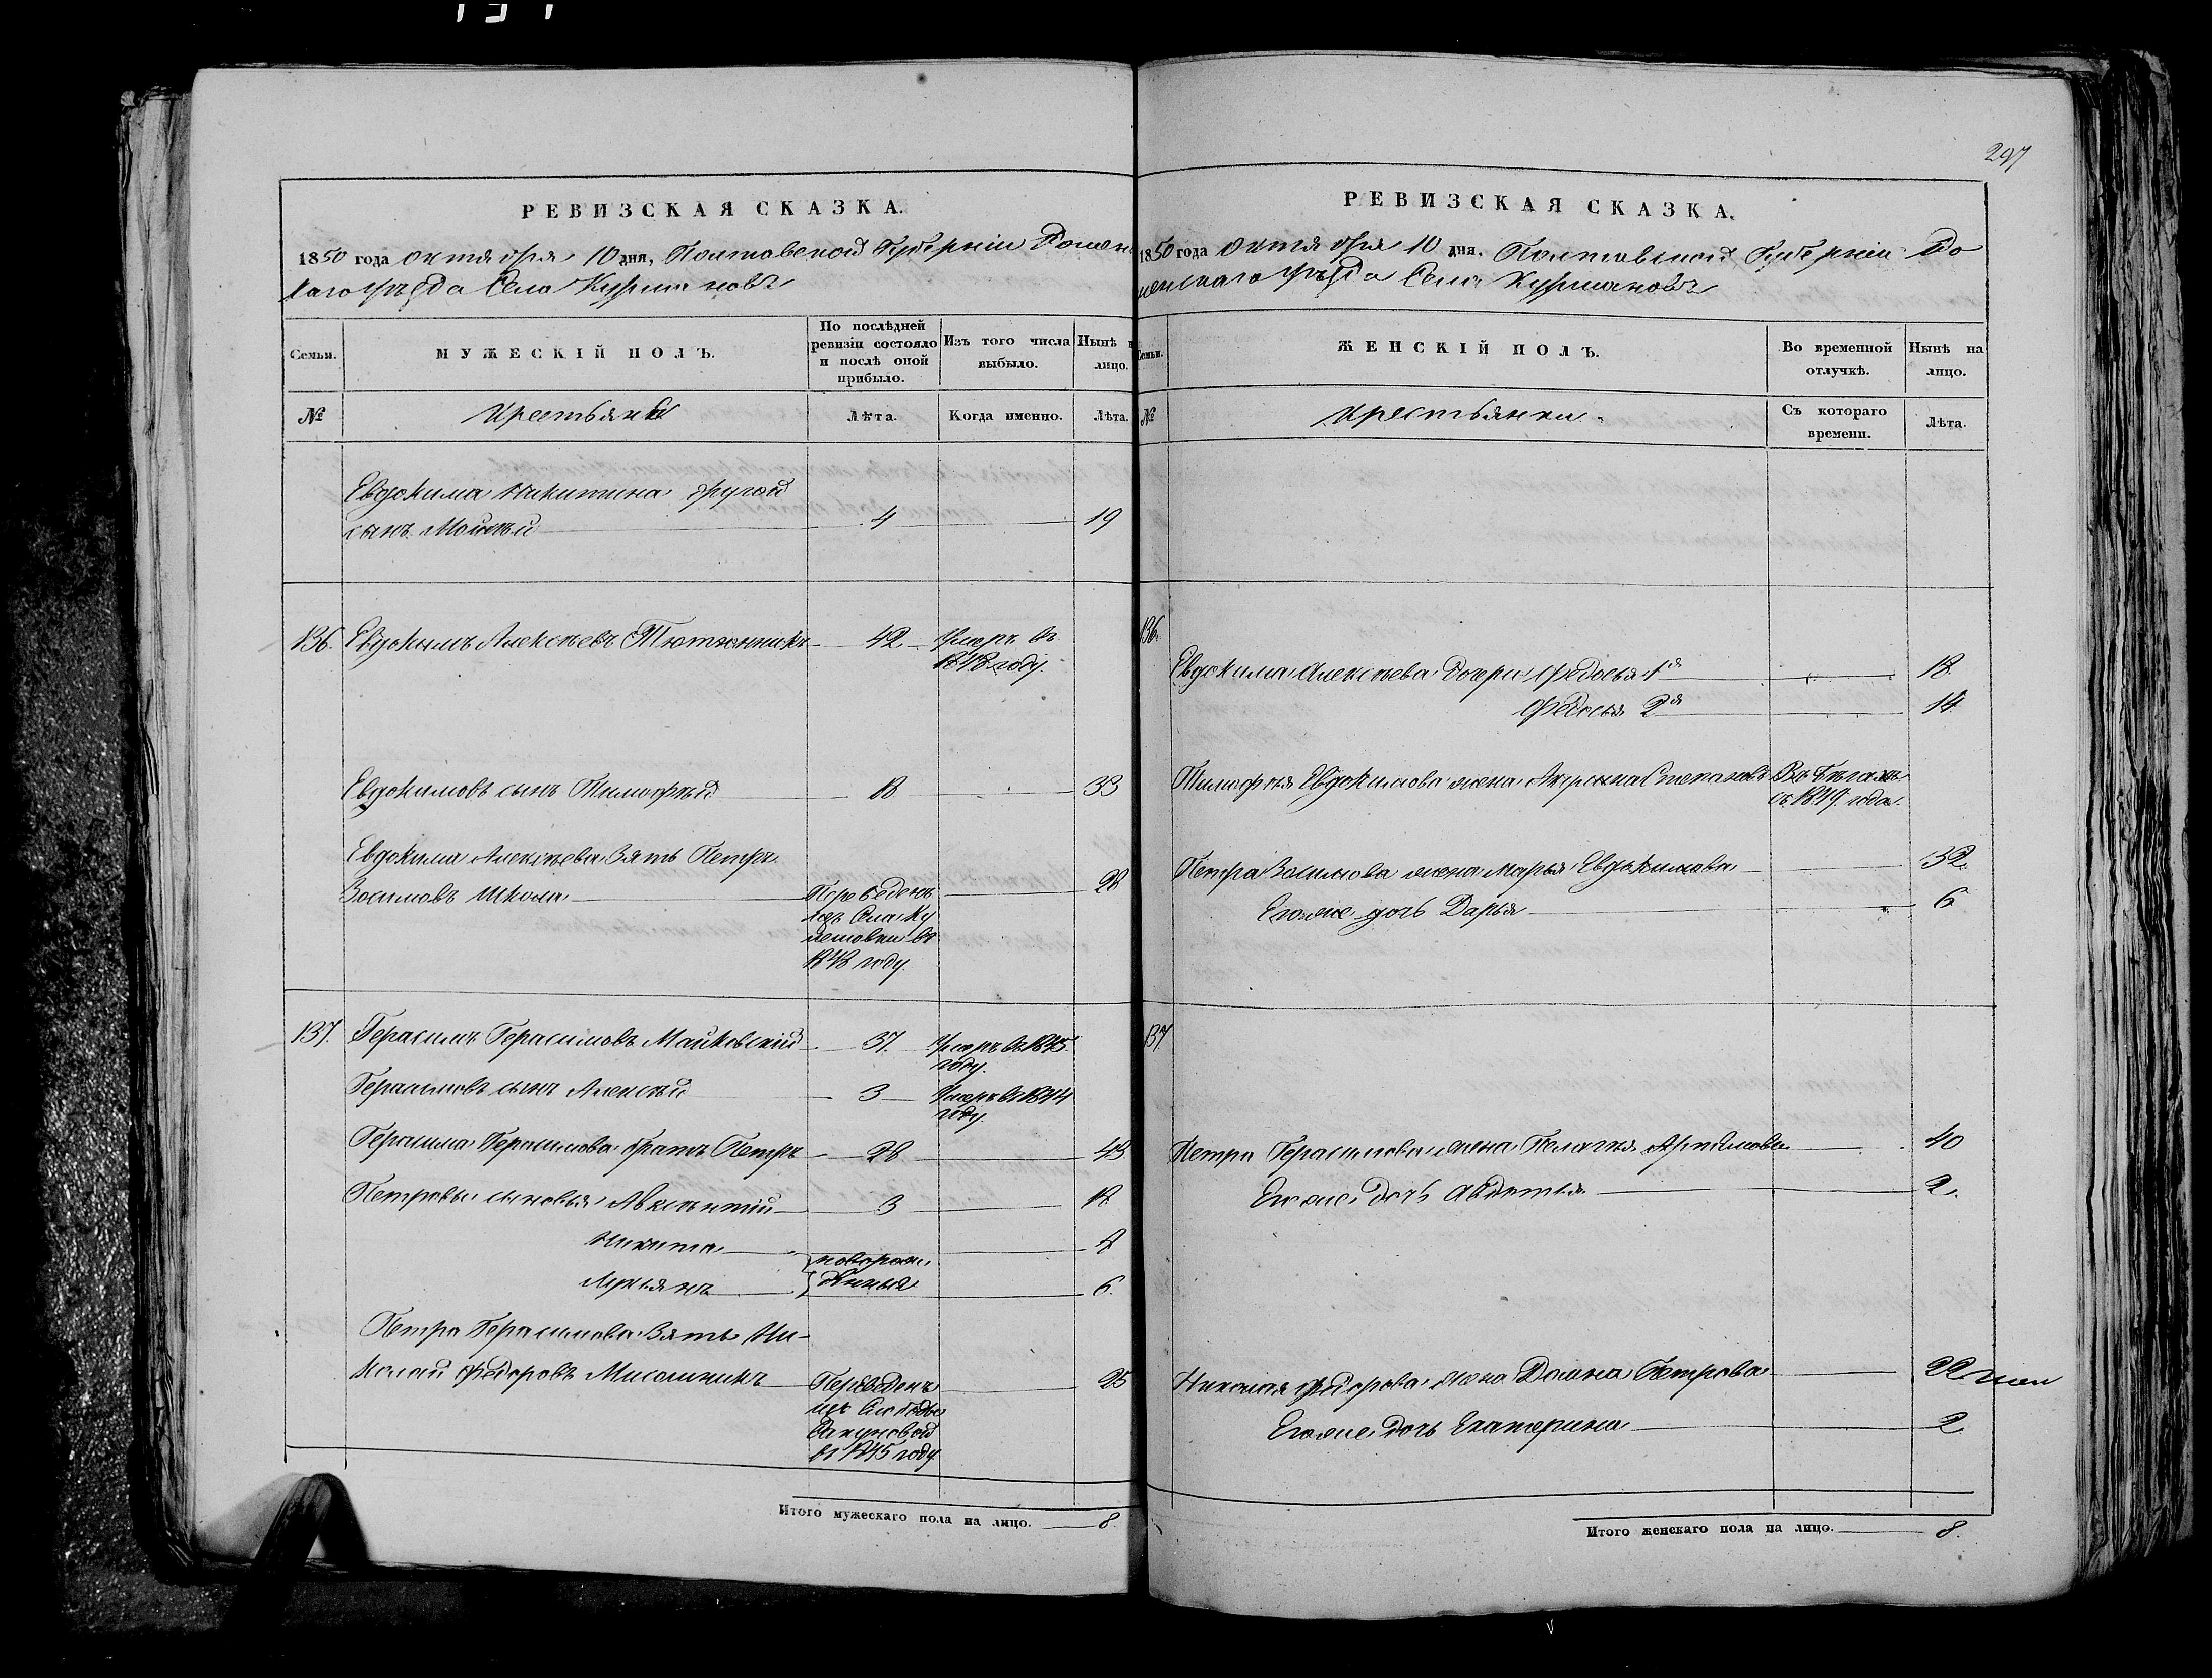 297
РЕВИЗСКАЯ СКАЗКА.
1850 года октября 10 дня, Полтавской Губерніи Ромен
скаго уѣзда Села Курмановъ
Семьи.
МУЖЕСКІЙ ПОЛЪ.
По послѣдней ревизіи состояло и послѣ оной прибыло.
Изъ того числа выбыло.
Нынѣ н лицо.
№
Крестьяне
Лѣта.
Когда именно.
Лѣта.
Евдокима Никитина другой
сынъ Моисей 4 19
136. Евдокимъ Алексѣевъ Тютюнникъ 42 Умеръ въ
1848 году.
Евдокимовъ сынъ Тимофѣй 18 33
Евдокима Алексѣева Зять Петръ
Зосимовъ Школа Переведенъ 28
изъ Села
въ
1848 году.
137. Герасимъ Герасимовъ Майковскій 37. Умеръ въ 1845
году.
Герасимовъ сынъ Алексѣй 3 Умеръ въ 1844
году.
Герасима Герасимова братъ Петръ 28 43
Петровы сыновья Авксентій 3 18
Никита новорож 8
Лукьянъ денныя 6.
Петра Герасимова Зять Ни-
колай Федоровъ Мисошникъ Переведенъ 25
изъ Слободы
Бакумовой
въ 1845 году
Итого мужескаго пола на лицо. 8
РЕВИЗСКАЯ СКАЗКА.
1850 года октября 10 дня. Полтавской Губерніи Ро
менскаго уѣзда Села Курмановъ
Семьи.
ЖЕНСКІЙ ПОЛЪ.
Во временной отлучкѣ.
Нынѣ на лицо.
№
Крестьянки.
Съ котораго времени.
Лѣта.
136.
Евдокима Алексѣева дочри Федосья 1я 18.
Федосья 2я 14
Тимофѣя Евдокимова жена Акулина Степанова Въ бѣгахъ
съ 1849 года.
Петра Зосимова жена Марья Евдокимова 32.
Егоже дочь Дарья 6
137
Петра Герасимова жена Пелагея Артемова 40
Егоже дочь Авдотья 2.
Николая Федорова жена Домна Петрова 22
Егоже дочь Екатерина 2
Итого женскаго пола на лицо. 8.